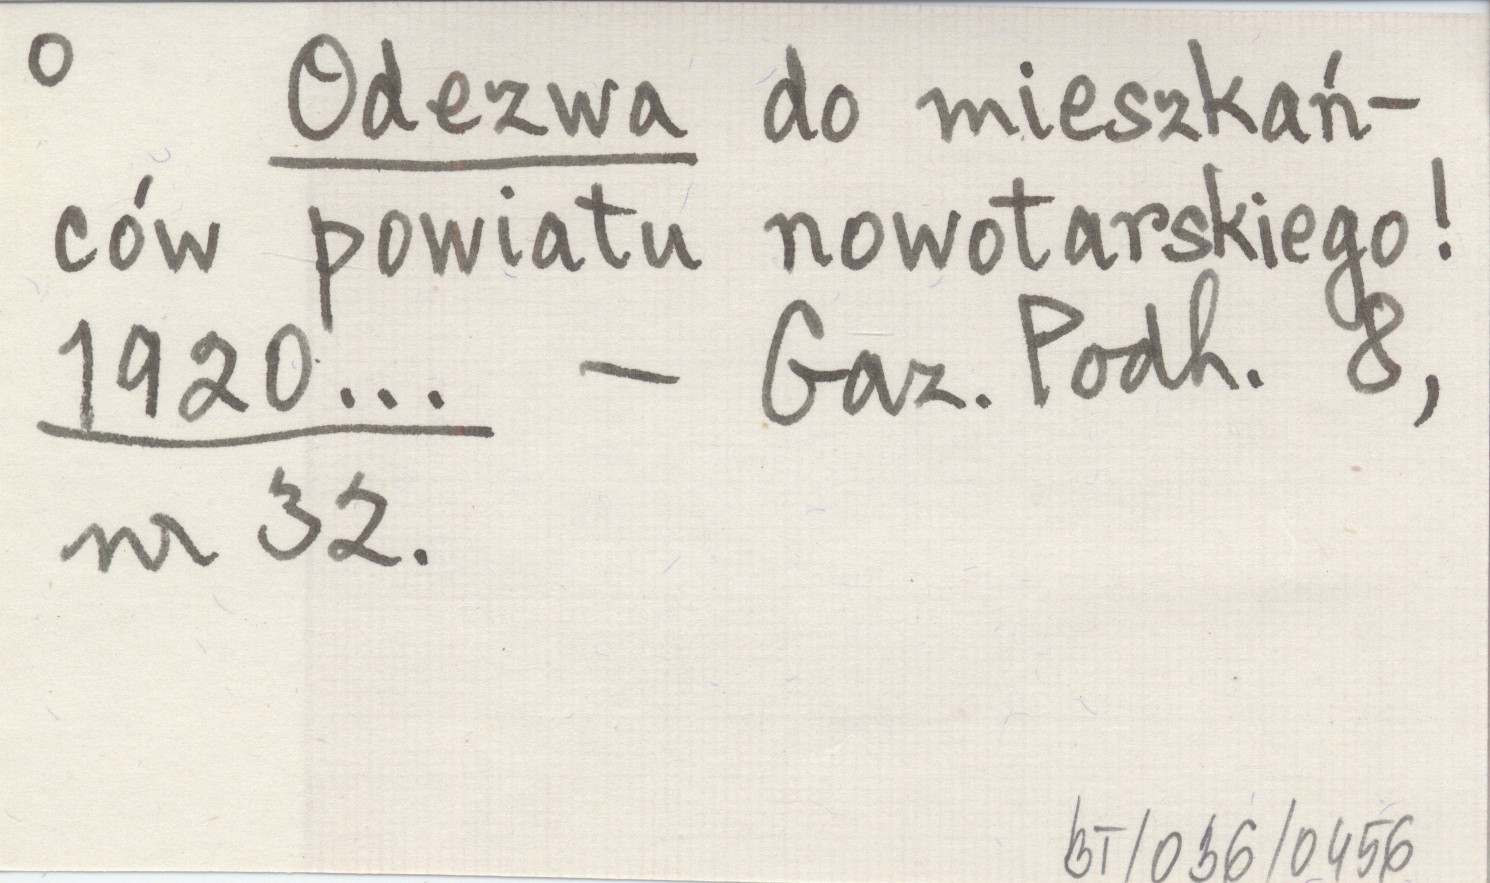 o Odezwa do mieszkań-
ców powiatu nowotarskiego!
1920... — Gaz. Podh. 8,
nr 32.
BT/036/0456